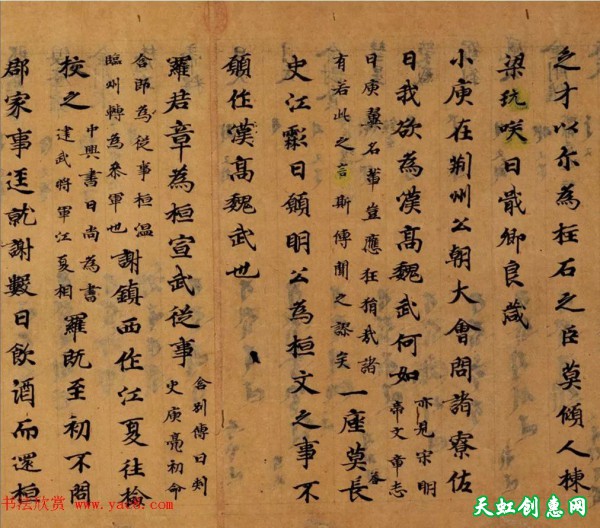 之才以尔為柱石之臣莫傾人棟
梁玩咲曰戢卿良葴
小庾在荊州公朝大會問諸寮佐
曰我欲為漢高魏武何如
亦見宋明
帝文章志
曰庾翼名輩豈應狂狷哉諸
有若此之言斯傳聞之謬矣
一座莫荅長
史江虨曰願明公為桓文之事不
願作漢高魏武也
羅君章為桓宣武從事
含別傳曰刾
史庾亮初命
含即為從事桓温
臨州轉為叅軍也
謝鎮西作江夏往撿
挍之
中興書曰尚為書
建武將軍江夏相
羅既至初不問
郡家事逕就謝數日飲酒而還桓
书法欣赏 www.yac8.com
天虹创惠网